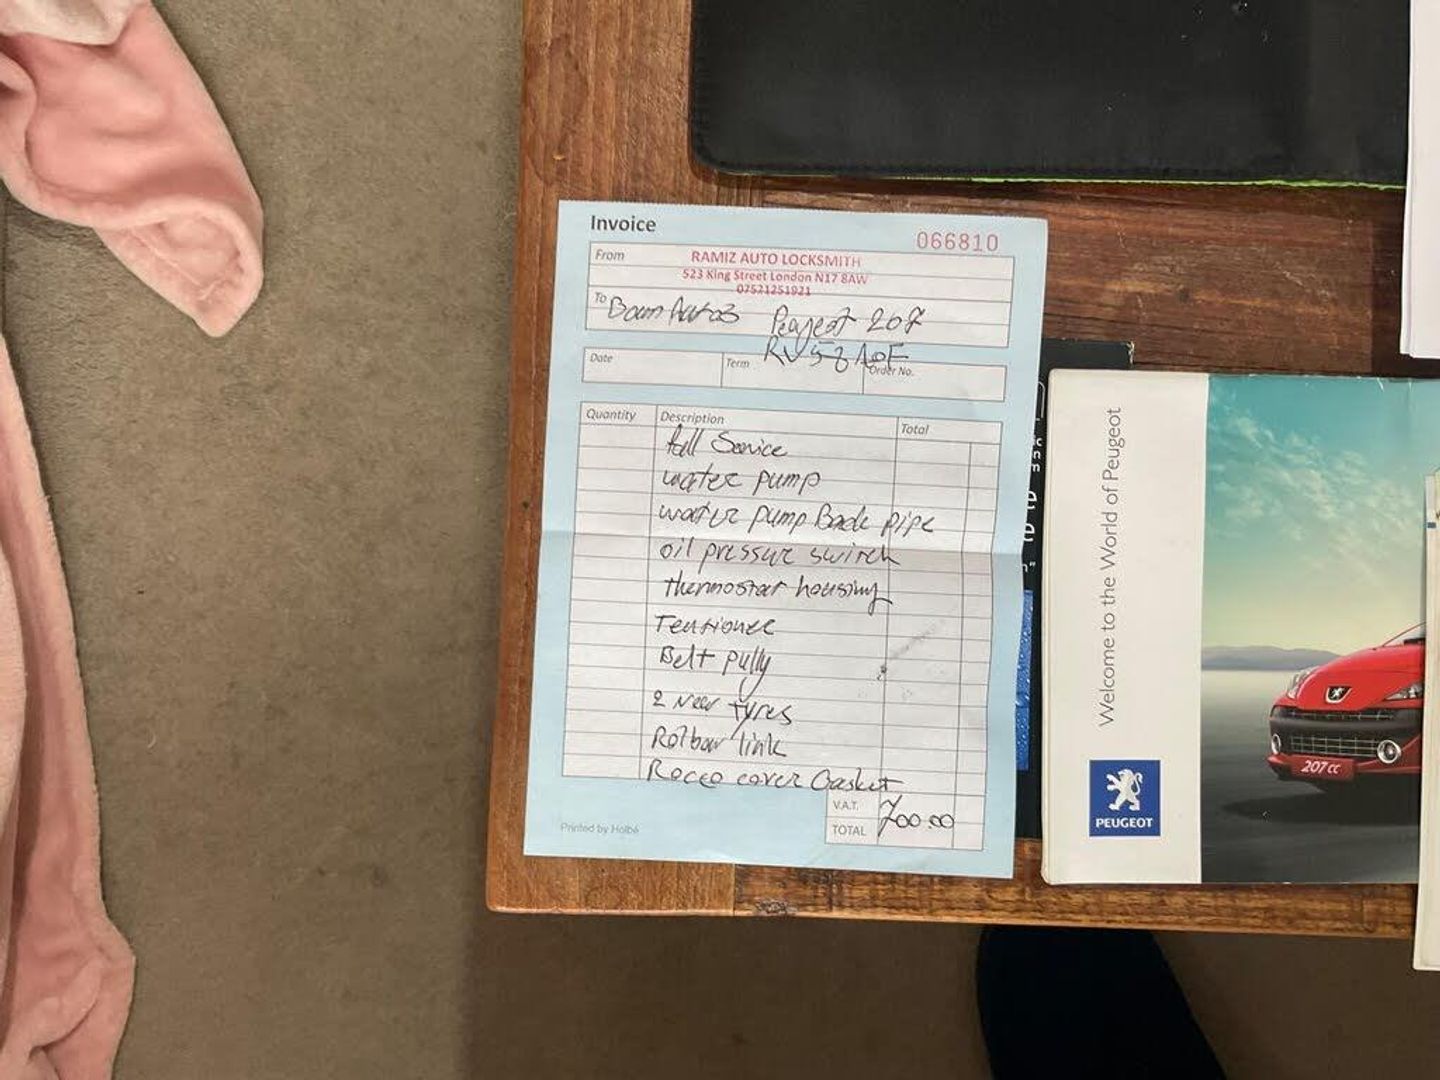 Invoice
066810
From
RAMIZ AUTO LOCKSMITH
523 King Street London N17 8AW
07521251921
To
Peajeot 207
RV58
Date
Term
Order No.
Quantity
Description
Total
full Service
water pump
water pump Back pipe
oil pressure switch
thermostat housing
Tentionee
Belt pully
2 New Tyres
Rolbar link
Rocco cover Gasket
V.A.T.
TOTAL
700.00
Printed by Holbé
Welcome to the World of Peugeot
PEUGEOT
207 cc